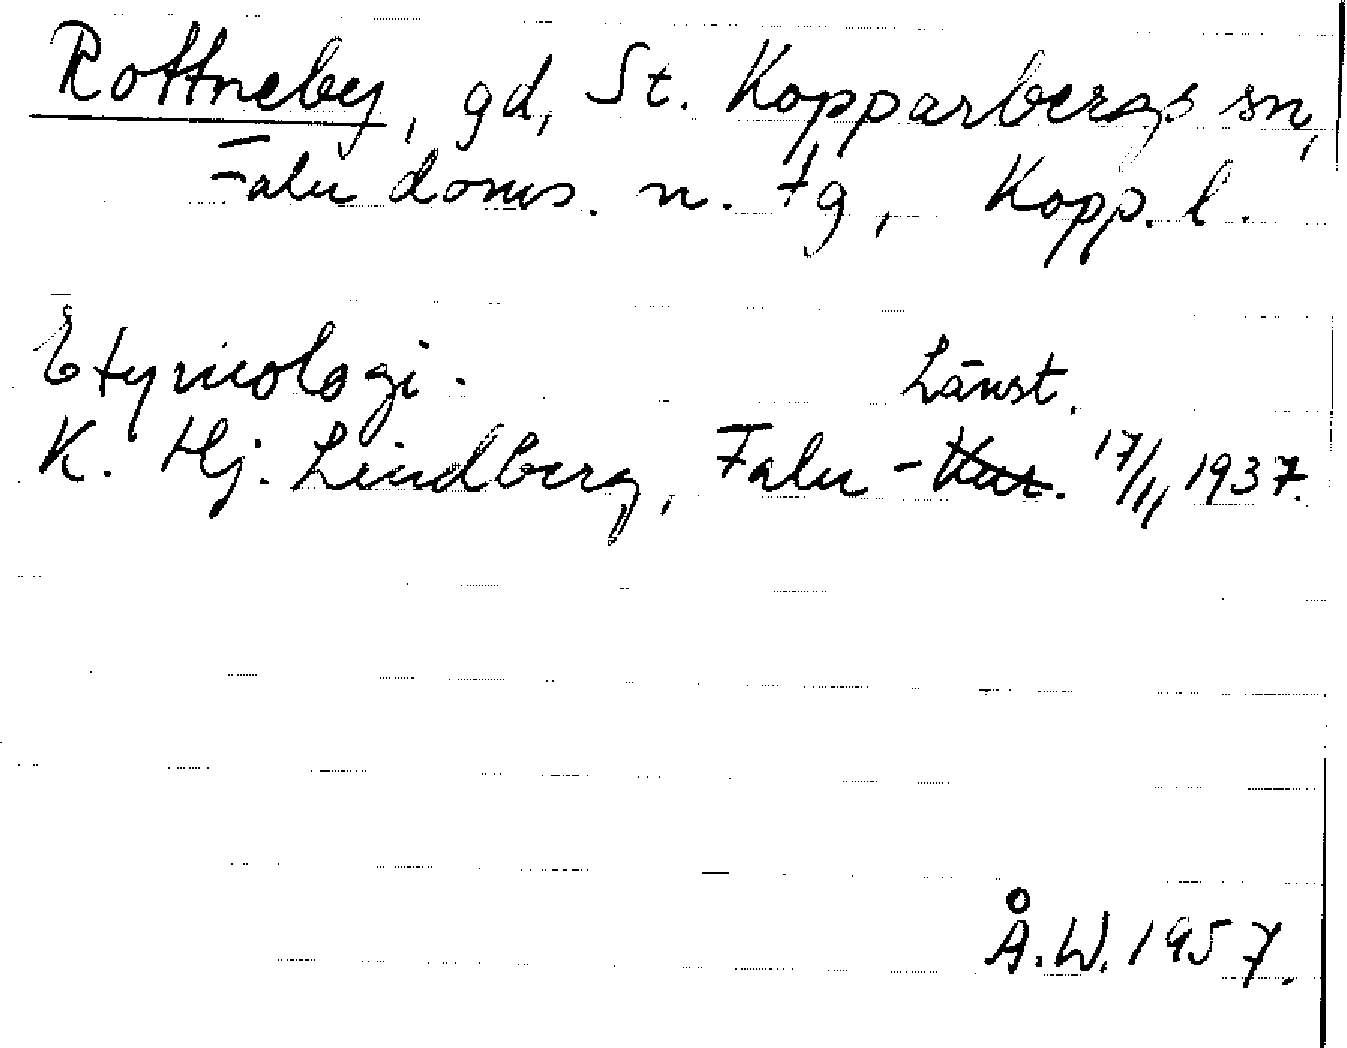 Rottneby, gd, St. Kopparbergs sn,
Falu doms. n. tg, Kopp. l.
Etymologi.
Länst.
K. Hj. Lindberg, Falu - Kur. 17/11 1937.
Å.W. 1957.